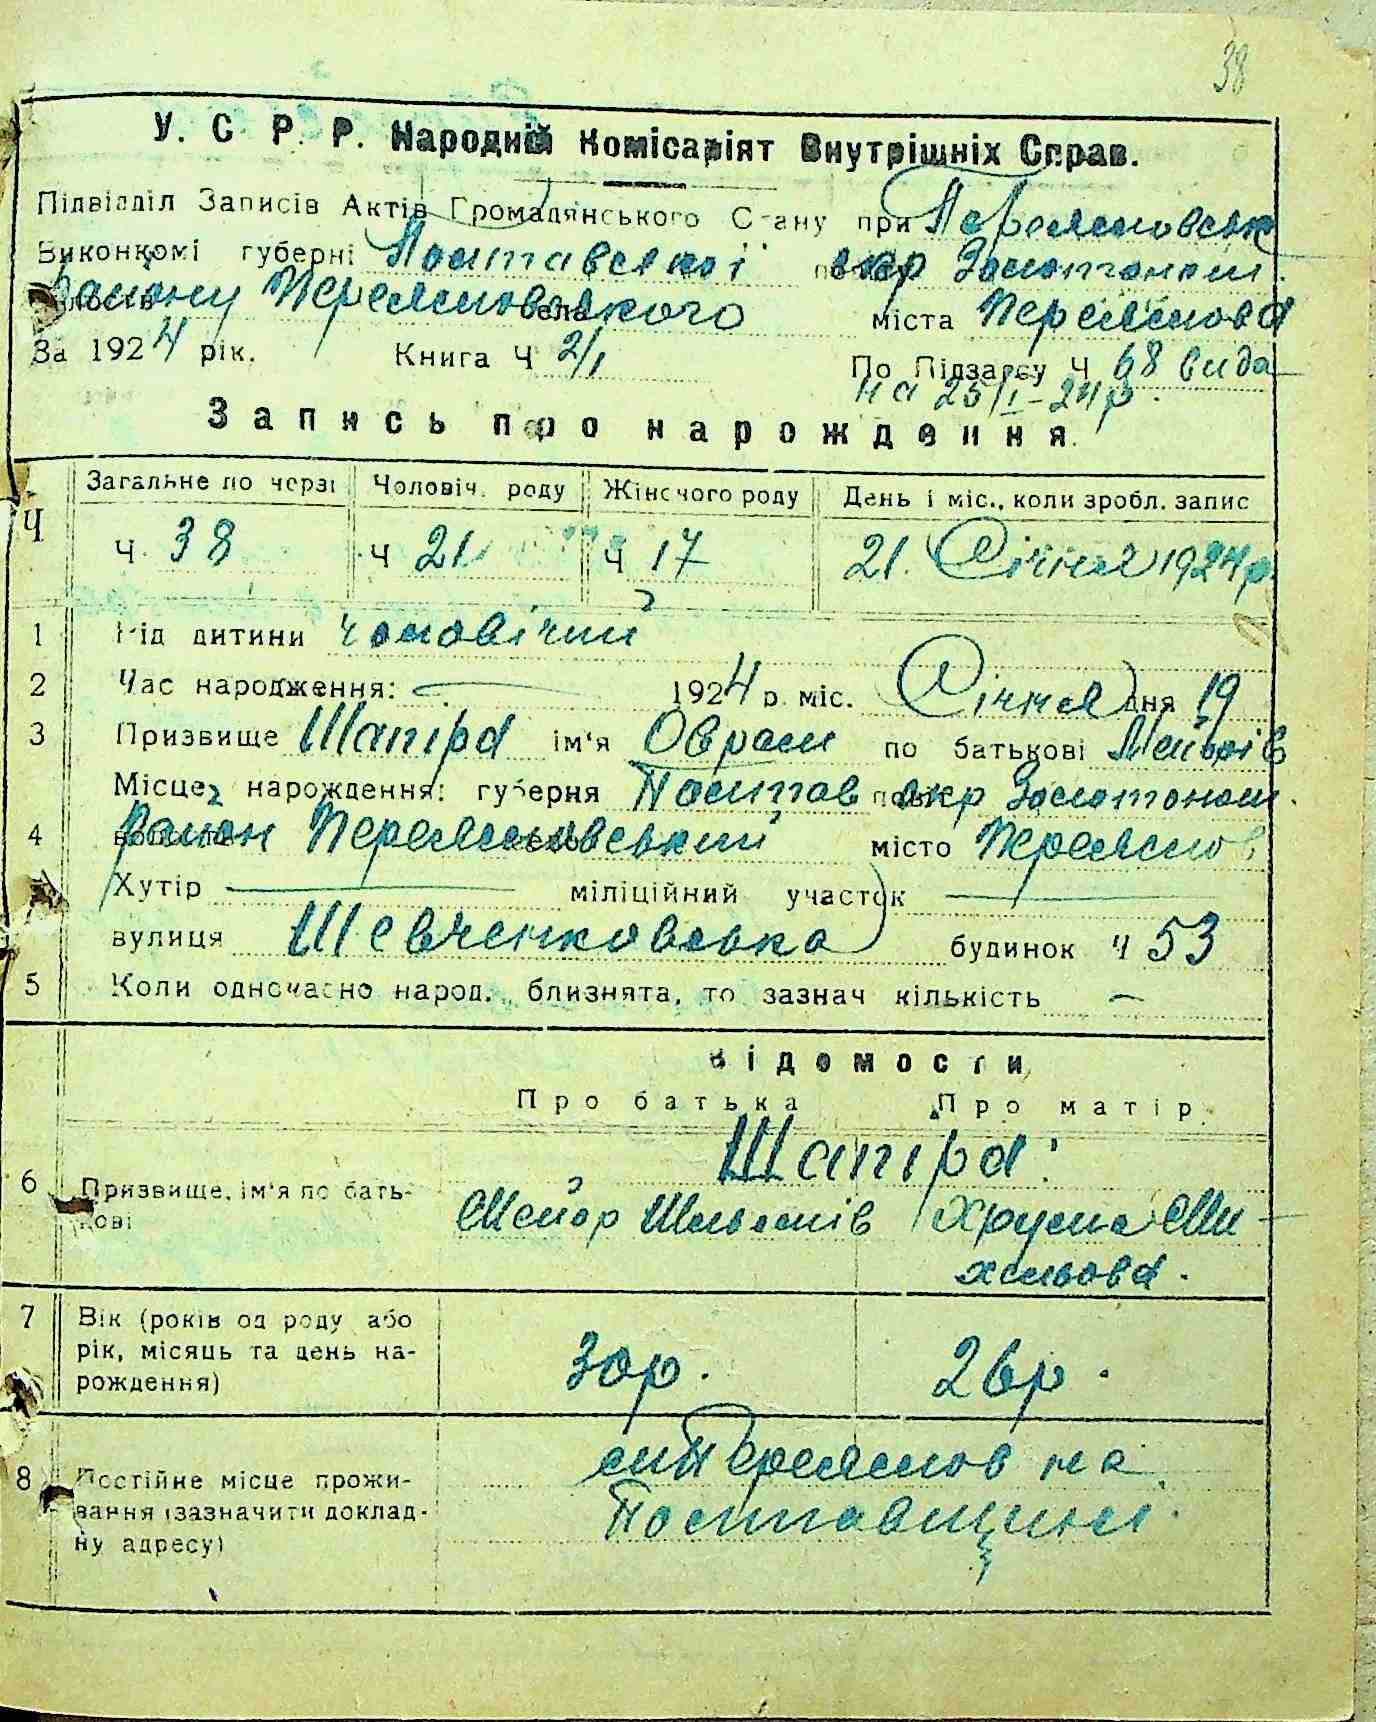 38
У. С. Р. Р. Народній Комісаріят Внутрішніх Справ.
Підвідділ Записів Актів Громадянського Стану при Переясловськ
Виконкомі губерні Полтавської окр Золотонош.
Району Переясловського села міста Переяслова
За 1924 рік. Книга Ч 2/1 По Підзагсу Ч 68 вида
на 25/I-24р.
Запись про нарождення.
Ч Загальне по черзі Чоловіч. роду Жіночого роду День і міс., коли зробл. запис
Ч 38 Ч 21 Ч 17 21. Січня 1924р.
1 Рід дитини чоловічий
2 Час народження: — 1924 р. міс. Січня дня 19
3 Призвище Шапіра ім'я Оврам по батькові Мейорів
Місце нарождення: губерня Полтав окр Золотонош.
4 район Переясловський місто Переяслов
Хутір — міліційний участок —
вулиця Шевченковська будинок Ч 53
5 Коли одночасно народ. близнята, то зазнач кількість —
Відомости
Про батька Про матір
Шапіра:
6 Призвище, ім'я по бать- Мейор Шльомів Хрума Ми
кові хельова.
7 Вік (років од роду або
рік, місяць та день на- 30р. 26р.
рождення)
8 Постійне місце прожи- м Переяслов на
вання (зазначити доклад- Полтавщині.
ну адресу)